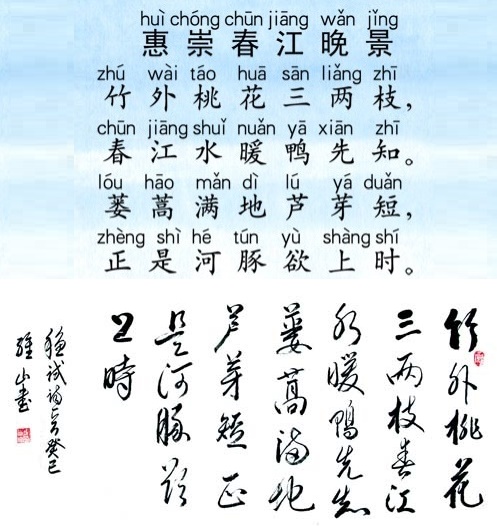 huì chóng chūn jiāng wǎn jǐng
惠崇春江晚景
zhú wài táo huā sān liǎng zhī
竹外桃花三两枝，
chūn jiāng shuǐ nuǎn yā xiān zhī
春江水暖鸭先知。
lóu hāo mǎn dì lú yá duǎn
蒌蒿满地芦芽短，
zhèng shì hé tún yù shàng shí
正是河豚欲上时。
竹外桃花
三两枝春江
水暖鴨先知
蔞蒿满地
芦芽短正
是河豚欲
上時
癸巳
山书